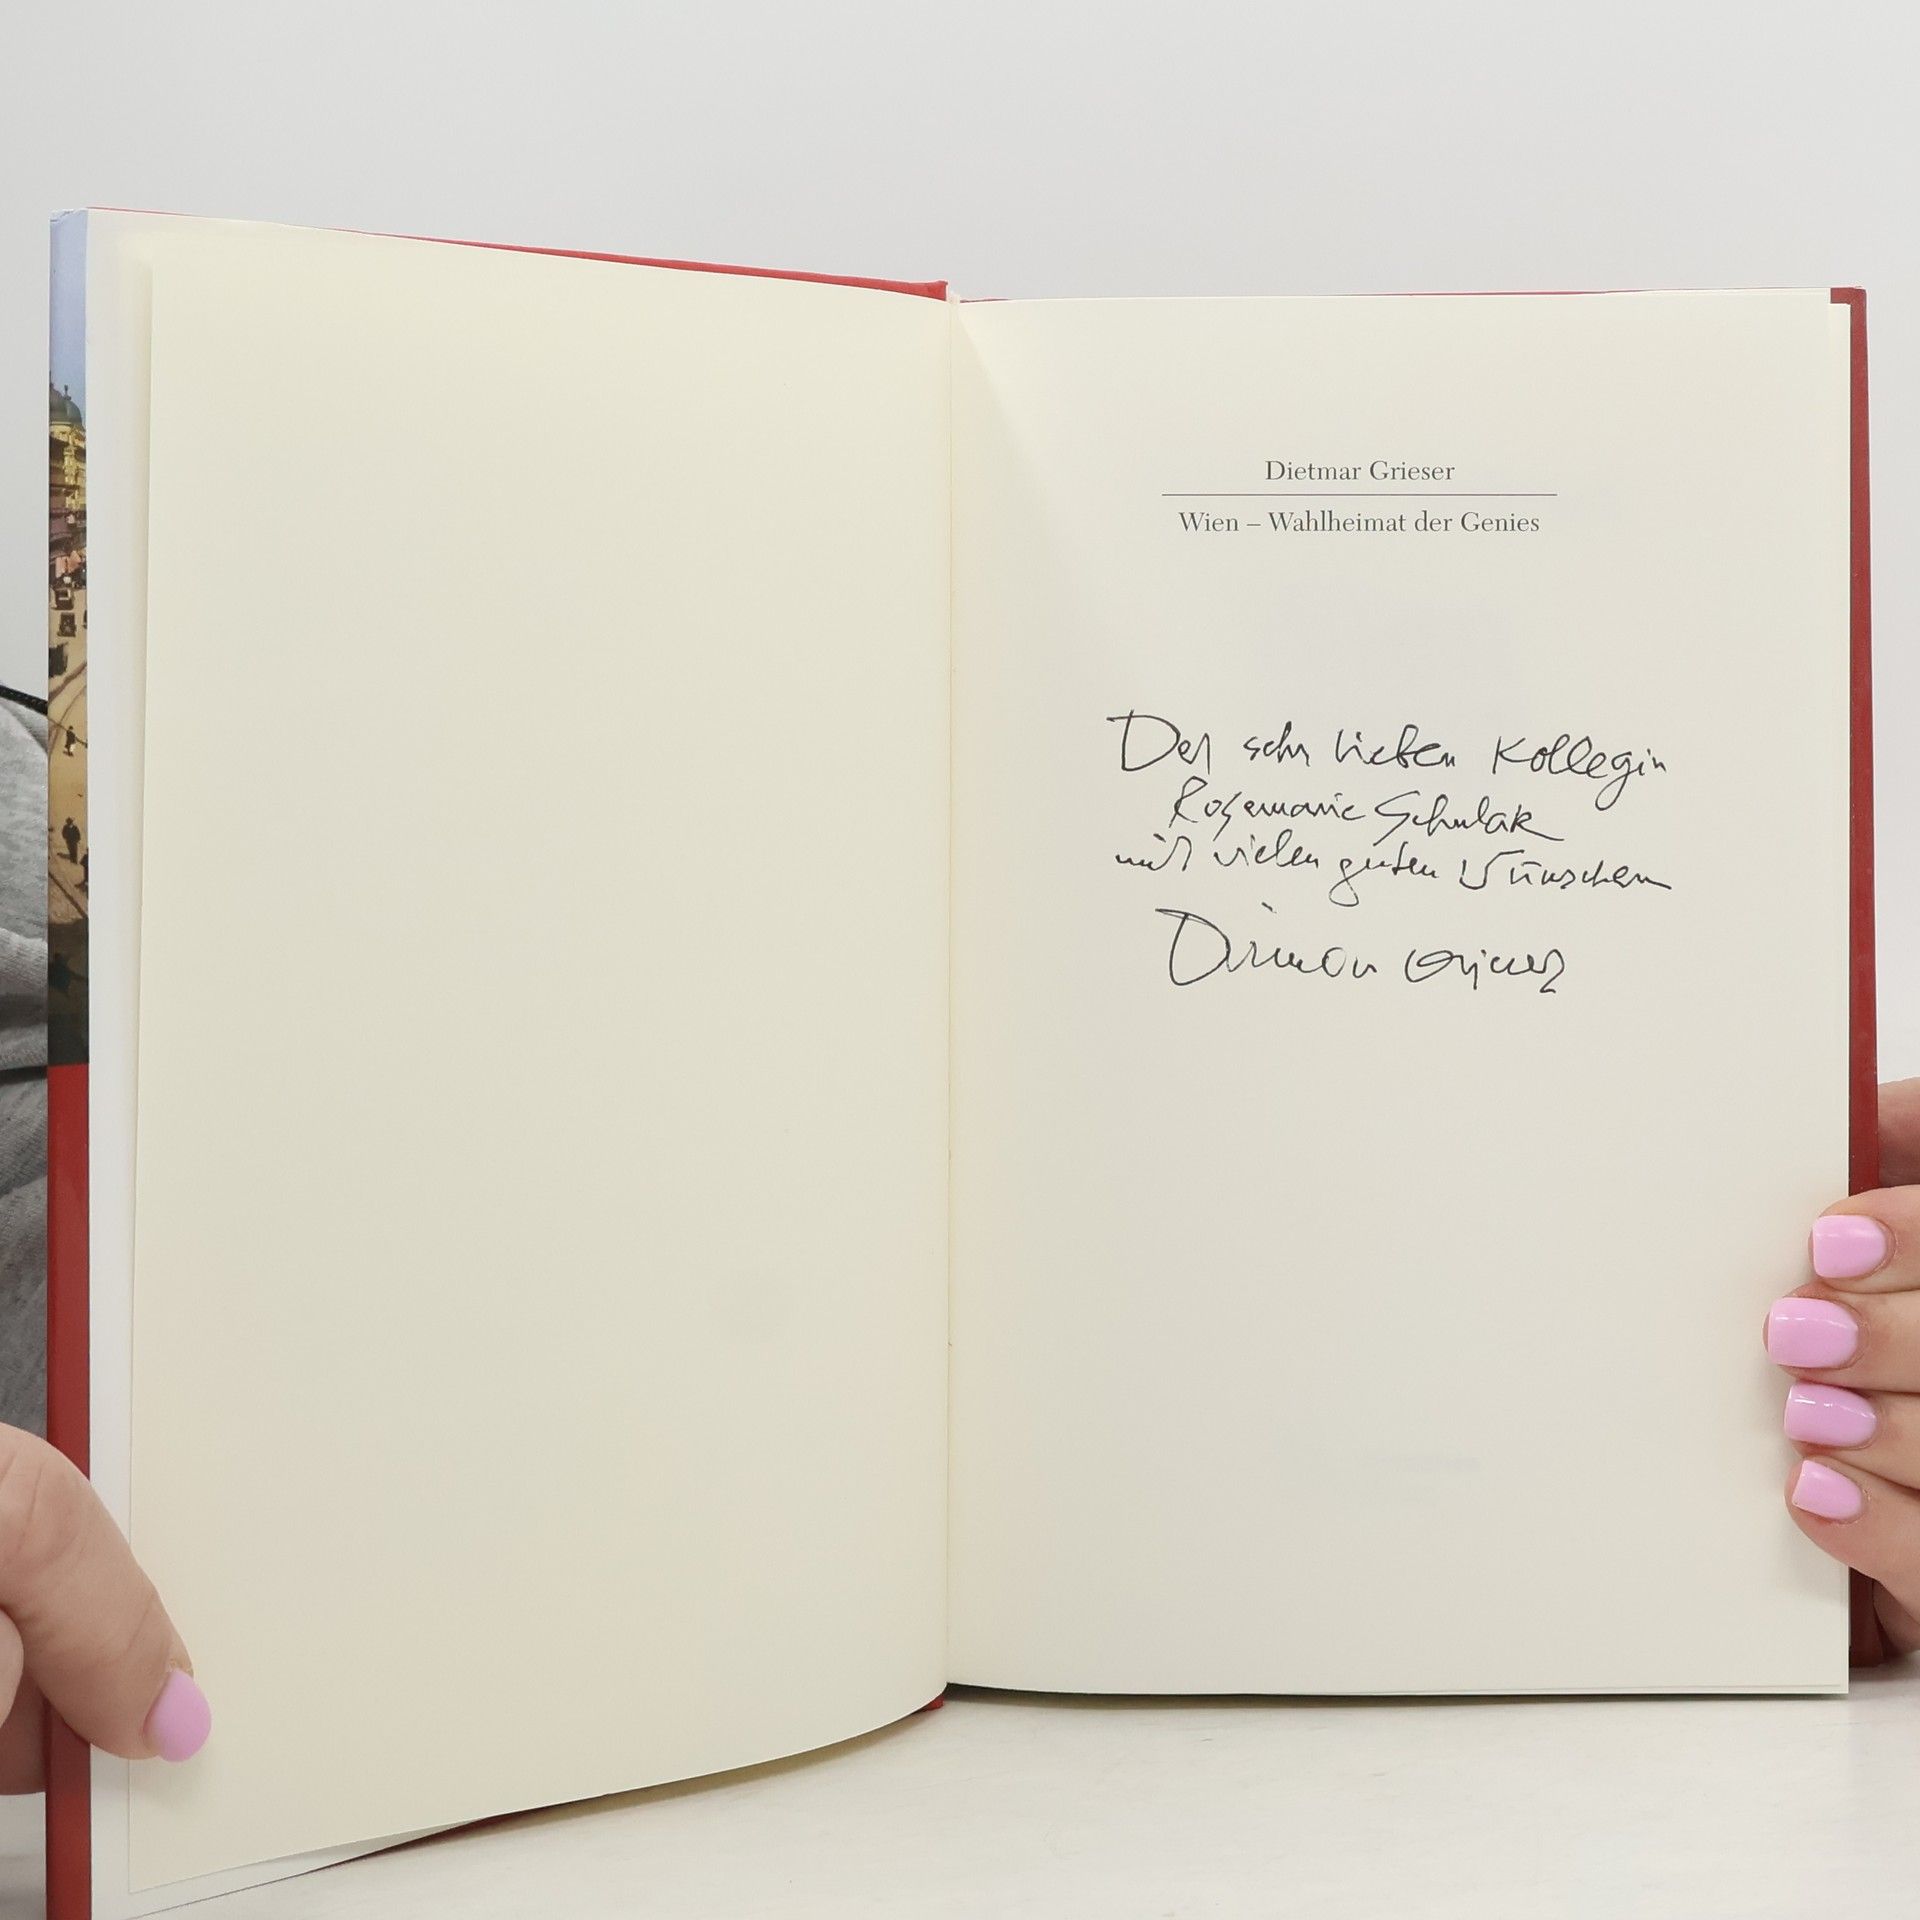 Dietmar Grieser
Wien – Wahlheimat der Genies
Der sehr lieben Kollegin
Rosemarie Schulak
mit vielen guten Wünschen
Dietmar Grieser